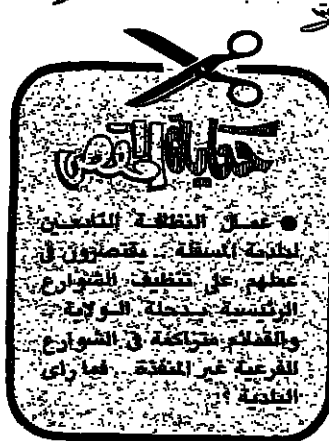 حكاية المقص
● عمال النظافة التابعين
لبلدية المسفلة .. يقتصرون في
عملهم على تنظيف الشوارع
الرئيسية
والقمائم متراكمة في الشوارع
الفرعية غير المنفذة .. فما رأي
البلدية ؟!